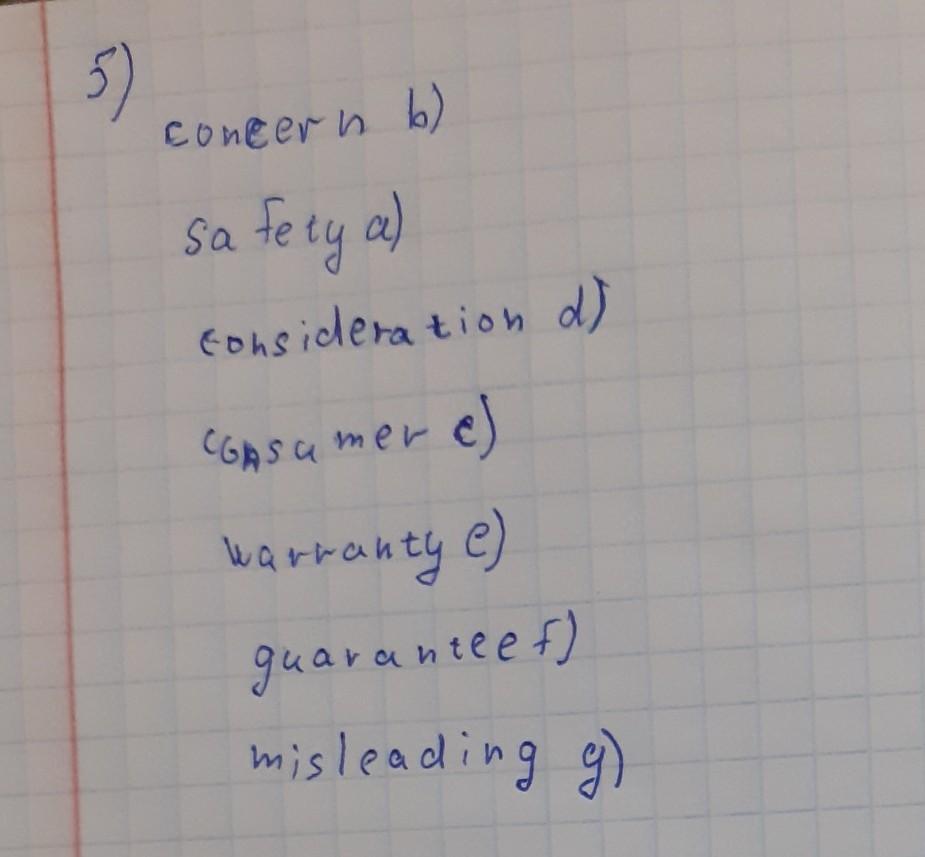 5)
concern b)
safety a)
consideration d)
consumer c)
warranty e)
guarantee f)
misleading g)